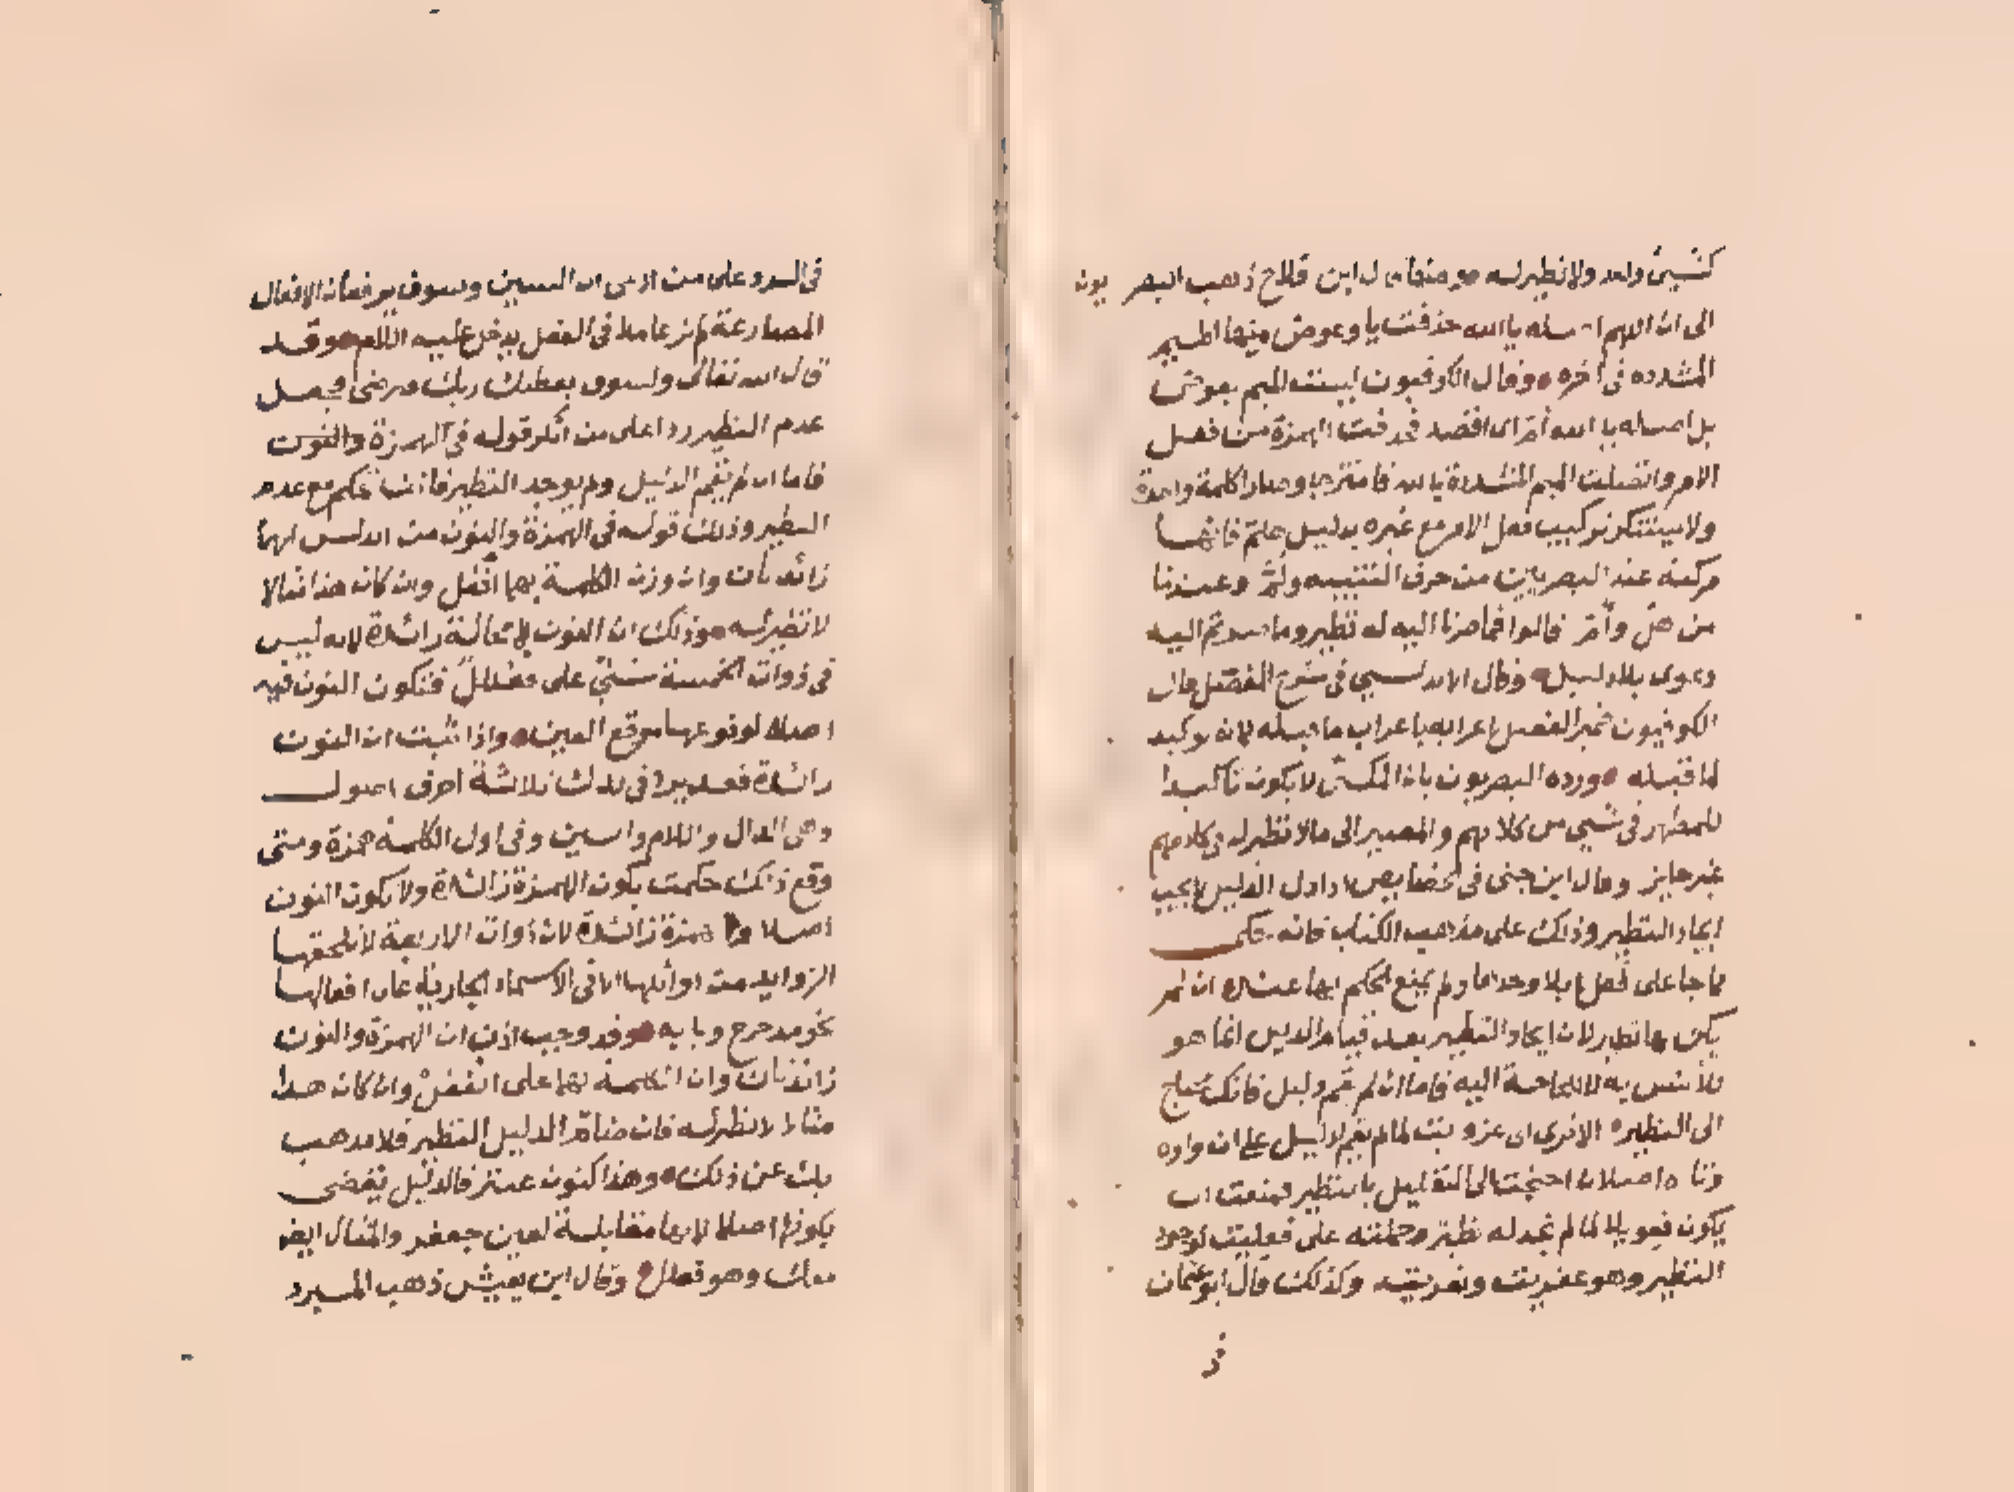 كشيئ واحد ولا نظير له ومنها قال ابن فلاح ذهب البصريون
الى ان اللهم اصله يا الله حذفت يا وعوض منها الميم
المشدده فى اخره وقال الكوفيون ليست الميم بعوض
بل اصله يا الله أم اى اقصد فحذفت الهمزة من فعل
الامر واتصلت الميم المشددة بالله فامتزجا وصارا كلمة واحدة
ولا يستنكر تركيب فعل الامر مع غيره بدليل هلم فانها
مركبه عند البصريين من حرف التنبيه ولم وعندنا
من هل وأم قالوا فما صرنا اليه له نظير وما صرتم اليه
دعوى بلا دليل وقال الاندلسي فى شرح المفصل قال
الكوفيون ضمير الفصل اعرابه باعراب ما قبله لانه توكيد
لما قبله ورده البصريون بان المكنى لا يكون تاكيدا
للمظهر فى شيئ من كلامهم والمصير الى ما لا نظير له فى كلامهم
غير جايز وقال ابن جنى فى الخصايص اذا دل الدليل لا يجب
ايجاد النظير وذلك على مذهب الكتاب فانه حكى
مما جا على فعل ابلا وحدها ولم يمنع الحكم بها عنده ان لم
يكن لها نظير لان ايجاد النظير بعد قيام الدليل انما هو
للأنس به لا للحاجة اليه فاما ان لم يقم دليل فانك محتاج
الى النظير الا ترى ان عزويت لما لم يقم الدليل على ان واوه
وتاه اصلان احتجت الى التعليل بالنظير فمنعت ان
يكون فعويلا لما لم تجد له نظيرا وحملته على فعليت لوجود
النظير وهو عفريت ونفريت وكذلك قال ابو عثمان
فى
فى الرد على من ادعى ان السين وسوف يرفعان الافعال
المضارعة لم نر عاملا فى الفعل يدخل عليه اللام وقد
قال الله تعالى ولسوف يعطيك ربك فترضى فجعل
عدم النظير ردا على من انكر قوله فى الهمزة والنون
فاما ان لم يقم الدليل ولم يوجد النظير فانك تحكم مع عدم
النظير وذلك قوله فى الهمزة والنون من اندلس انهما
زائدتان وان وزن الكلمة بهما أنفعل وان كان هذا مثالا
لا نظير له وذلك ان النون لا محالة زائدة لانه ليس
فى ذوات الخمسة شيئ على فعللل فتكون النون فيه
اصلا لوقوعها موقع العين واذا ثبت ان النون
زائدة فقد برد فى يدك ثلاثة احرف اصول
وهى الدال واللام والسين وفى اول الكلمة همزة ومتى
وقع ذلك حكمت بكون الهمزة زائدة ولا تكون النون
اصلا والهمزة زائدة لان ذوات الاربعة لا تلحقها
الزوايد من اوائلها الا فى الاسماء الجارية على افعالها
نحو مدحرج وبابه وقد وجب اذن ان الهمزة والنون
زائدتان وان الكلمة بهما على انفعل وان كان هذا
مثالا لا نظير له فان ضام الدليل النظير فلا مذهب
بك عن ذلك وهذا كنون عنتر فالدليل يقضى
بكونها اصلا لانها مقابلة لعين جعفر والمثال ايضا
معك وهو فعلل وقال ابن يعيش ذهب المبرد